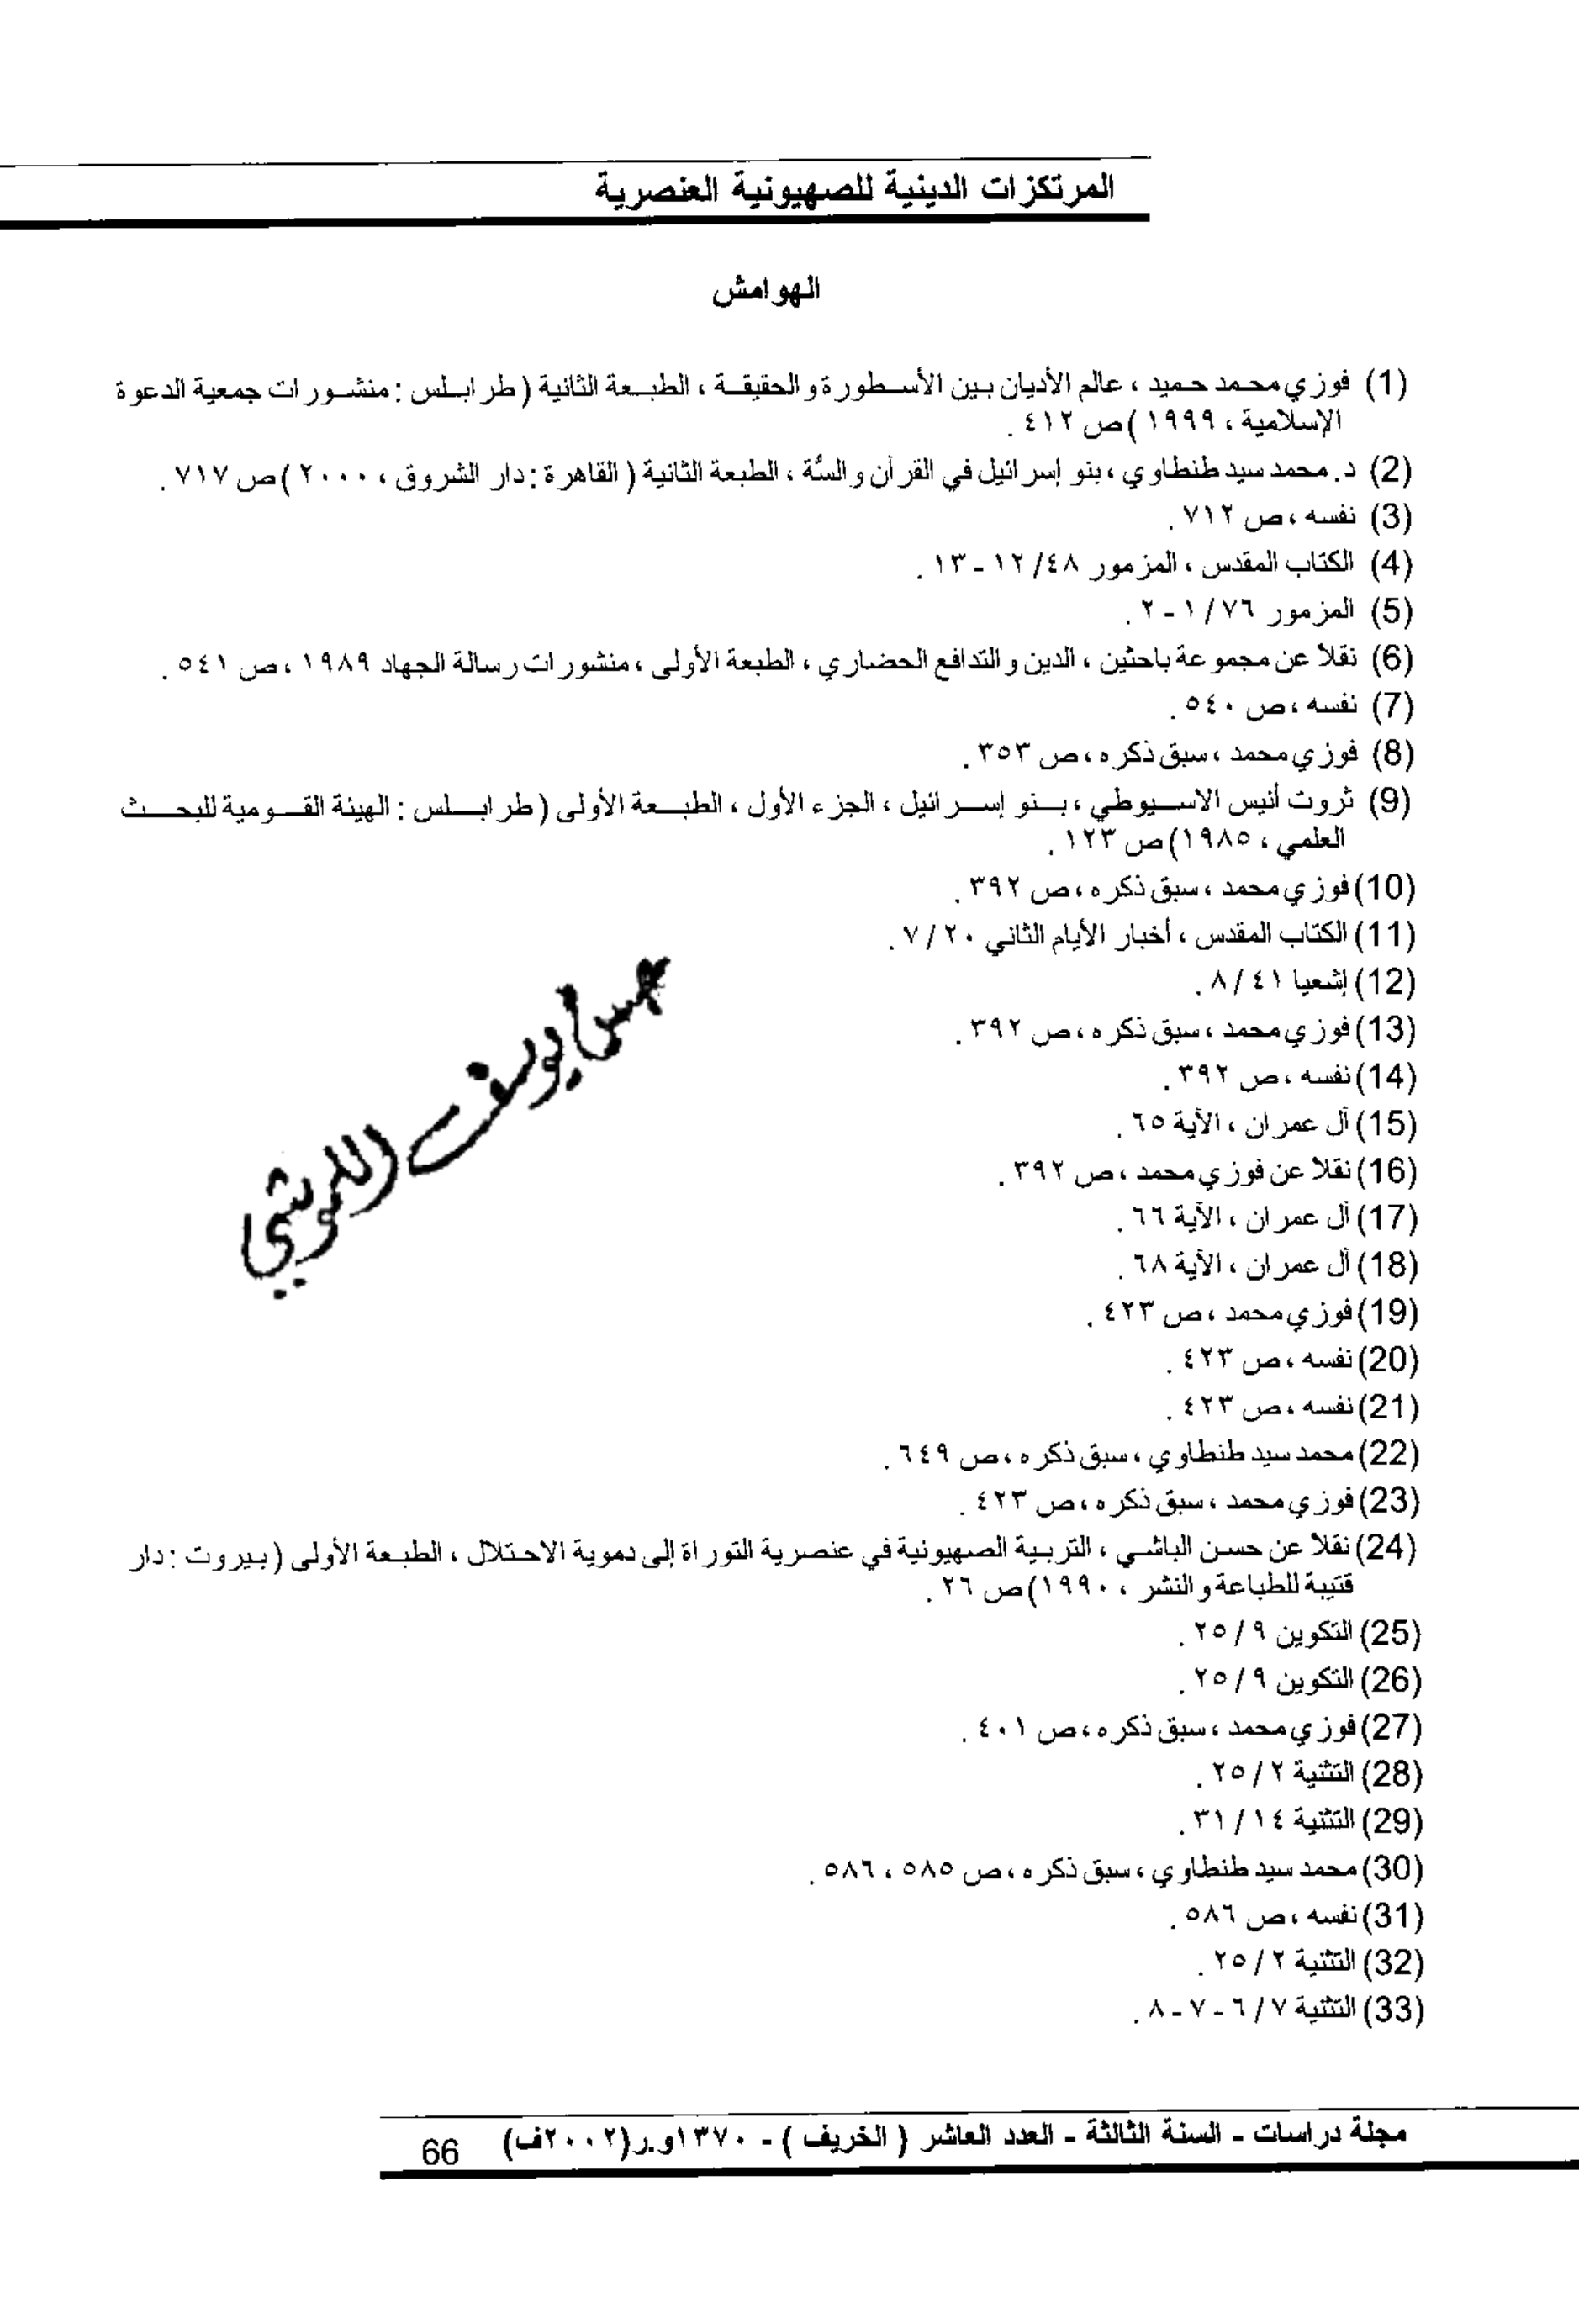 المرتكزات الدينية للصهيونية العنصرية
الهوامش
(1) فوزي محمد حميد ، عالم الأديان بين الأسطورة والحقيقة ، الطبعة الثانية ( طرابلس : منشورات جمعية الدعوة
الإسلامية ، ١٩٩٩ ) ص ٤١٢ .
(2) د. محمد سيد طنطاوي ، بنو إسرائيل في القرآن والسُّة ، الطبعة الثانية ( القاهرة : دار الشروق ، ٢٠٠٠ ) ص ٧١٧ .
(3) نفسه ، ص ٧١٢ .
(4) الكتاب المقدس ، المزمور ٤٨/ ١٢ - ١٣ .
(5) المزمور ٧٦ / ١ - ٢ .
(6) نقلاً عن مجموعة باحثين ، الدين والتدافع الحضاري ، الطبعة الأولى ، منشورات رسالة الجهاد ١٩٨٩ ، ص ٥٤١ .
(7) نفسه ، ص ٥٤٠ .
(8) فوزي محمد ، سبق ذكره ، ص ٣٥٣ .
(9) ثروت أنيس الاسيوطي ، بنو إسرائيل ، الجزء الأول ، الطبعة الأولى ( طرابلس : الهيئة القومية للبحث
العلمي ، ١٩٨٥) ص ١٢٣ .
(10) فوزي محمد ، سبق ذكره ، ص ٣٩٢ .
(11) الكتاب المقدس ، أخبار الأيام الثاني ٢٠ / ٧ .
(12) إشعيا ٤١ / ٨ .
(13) فوزي محمد ، سبق ذكره ، ص ٣٩٢ .
(14) نفسه ، ص ٣٩٢ .
(15) آل عمران ، الآية ٦٥ .
(16) نقلاً عن فوزي محمد ، ص ٣٩٢ .
(17) آل عمران ، الآية ٦٦ .
(18) آل عمران ، الآية ٦٨ .
(19) فوزي محمد ، ص ٤٢٣ .
(20) نفسه ، ص ٤٢٣ .
(21) نفسه ، ص ٤٢٣ .
(22) محمد سيد طنطاوي ، سبق ذكره ، ص ٦٤٩ .
(23) فوزي محمد ، سبق ذكره ، ص ٤٢٣ .
(24) نقلاً عن حسن الباشي ، التربية الصهيونية في عنصرية التوراة إلى دموية الاحتلال ، الطبعة الأولى ( بيروت : دار
قتيبة للطباعة والنشر ، ١٩٩٠) ص ٢٦ .
(25) التكوين ٩ / ٢٥ .
(26) التكوين ٩ / ٢٥ .
(27) فوزي محمد ، سبق ذكره ، ص ٤٠١ .
(28) التثنية ٢ / ٢٥ .
(29) التثنية ١٤ / ٣١ .
(30) محمد سيد طنطاوي ، سبق ذكره ، ص ٥٨٥ ، ٥٨٦ .
(31) نفسه ، ص ٥٨٦ .
(32) التثنية ٢ / ٢٥ .
(33) التثنية ٧ / ٦ - ٧ - ٨ .
يوسف
مجلة دراسات - السنة الثالثة - العدد العاشر ( الخريف ) - ١٣٧٠و.ر(٢٠٠٢ف) 66